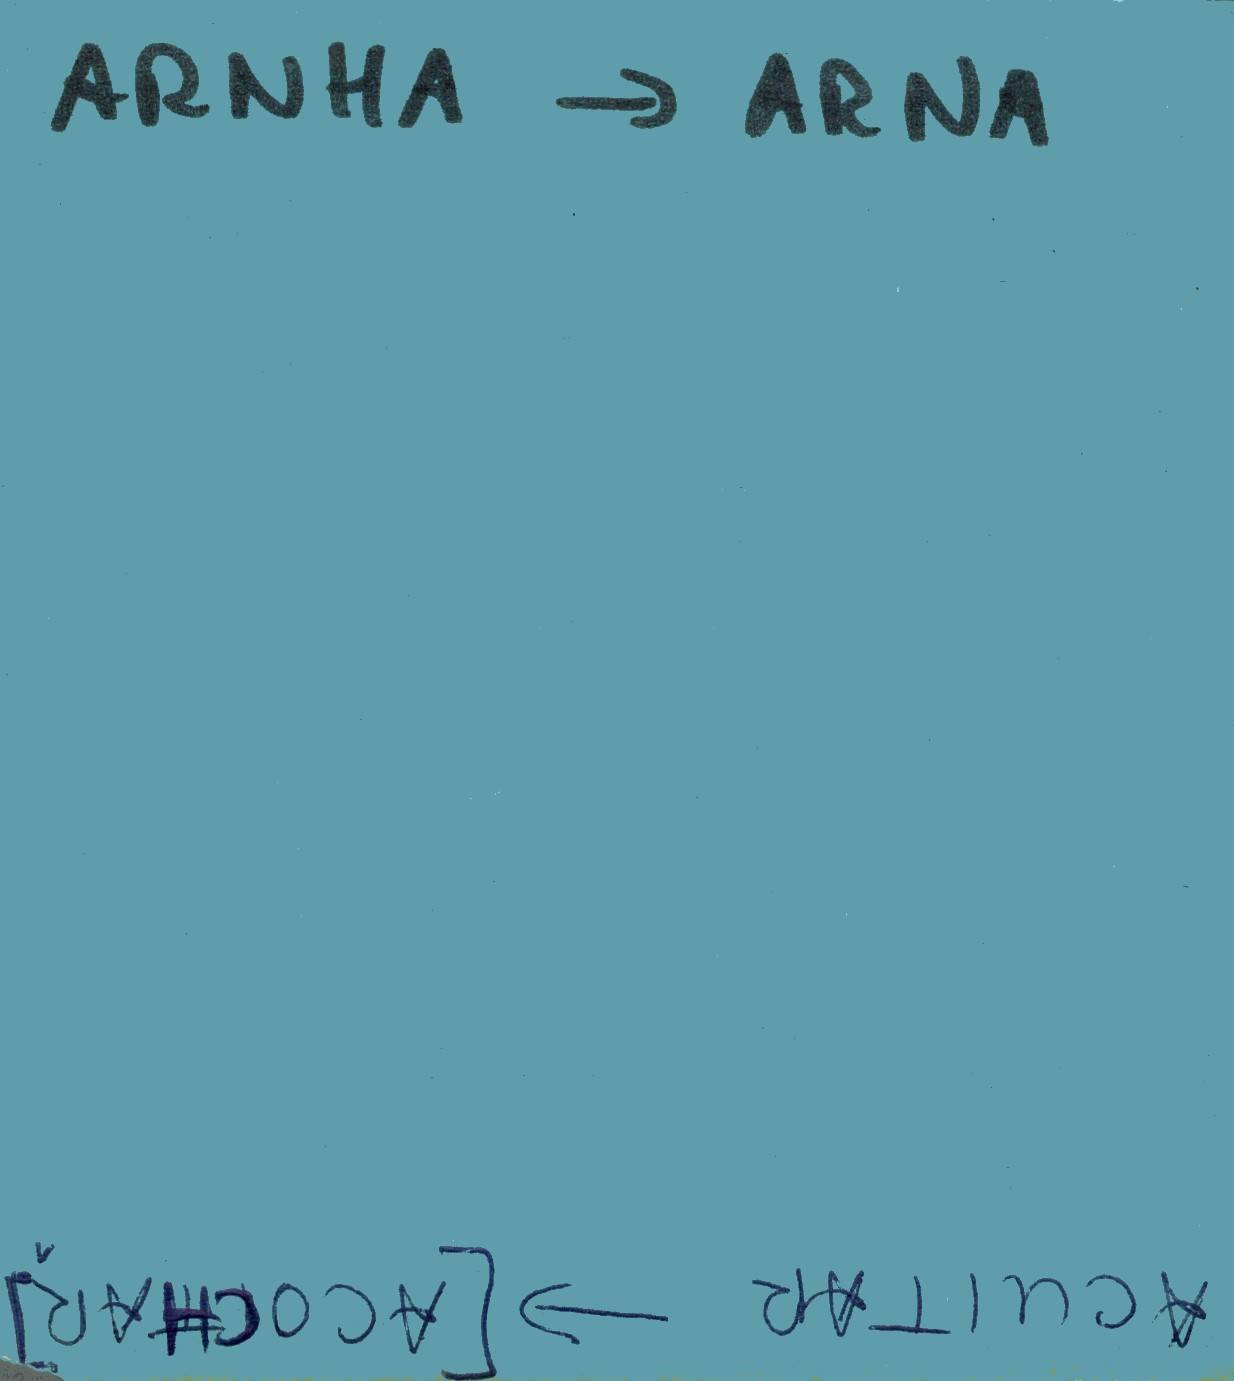 ARNHA → ARNA
ACUITAR → [ACOCHAR]